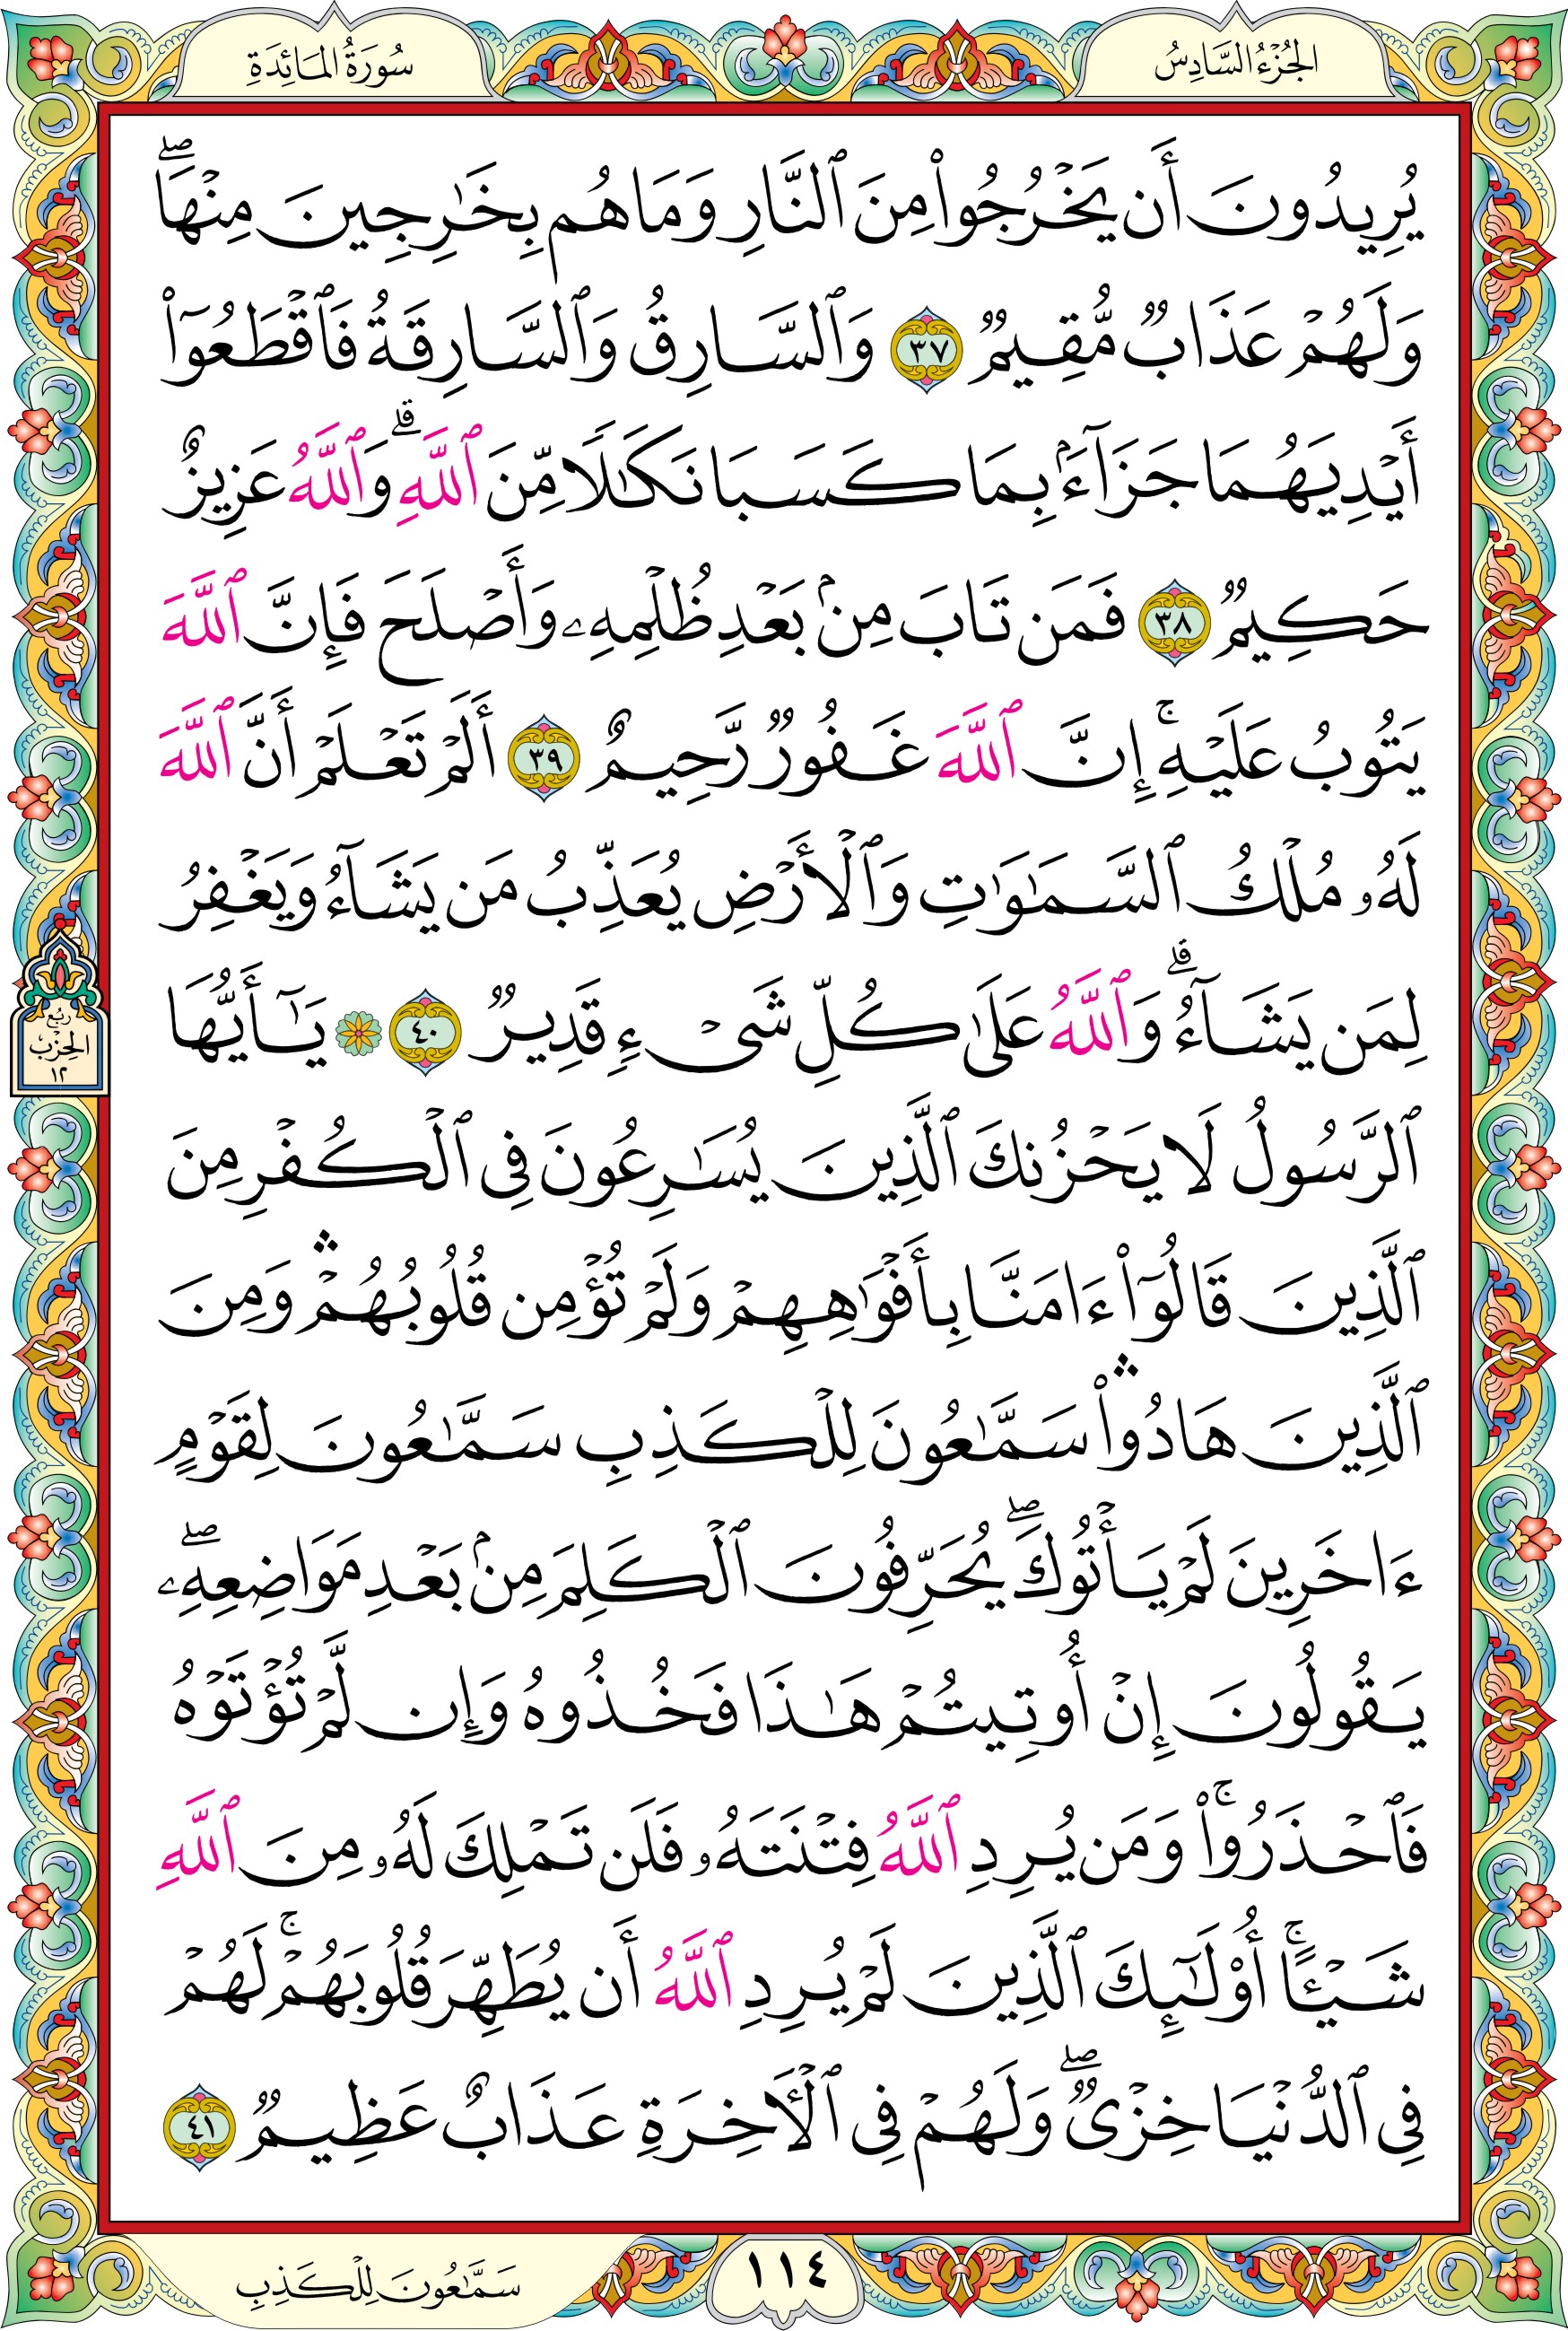 الجُزْءُ السَّادِسُ
سُورَةُ المَائِدَةِ
يُرِيدُونَ أَن يَخْرُجُوا۟ مِنَ ٱلنَّارِ وَمَا هُم بِخَٰرِجِينَ مِنْهَاۖ
وَلَهُمْ عَذَابٌ مُّقِيمٌ ٣٧ وَٱلسَّارِقُ وَٱلسَّارِقَةُ فَٱقْطَعُوٓا۟
أَيْدِيَهُمَا جَزَآءَۢ بِمَا كَسَبَا نَكَٰلًا مِّنَ ٱللَّهِۗ وَٱللَّهُ عَزِيزٌ
حَكِيمٌ ٣٨ فَمَن تَابَ مِنۢ بَعْدِ ظُلْمِهِۦ وَأَصْلَحَ فَإِنَّ ٱللَّهَ
يَتُوبُ عَلَيْهِۚ إِنَّ ٱللَّهَ غَفُورٌ رَّحِيمٌ ٣٩ أَلَمْ تَعْلَمْ أَنَّ ٱللَّهَ
لَهُۥ مُلْكُ ٱلسَّمَٰوَٰتِ وَٱلْأَرْضِ يُعَذِّبُ مَن يَشَآءُ وَيَغْفِرُ
لِمَن يَشَآءُۗ وَٱللَّهُ عَلَىٰ كُلِّ شَىْءٍ قَدِيرٌ ٤٠ ۞ يَٰٓأَيُّهَا
ٱلرَّسُولُ لَا يَحْزُنكَ ٱلَّذِينَ يُسَٰرِعُونَ فِى ٱلْكُفْرِ مِنَ
ٱلَّذِينَ قَالُوٓا۟ ءَامَنَّا بِأَفْوَٰهِهِمْ وَلَمْ تُؤْمِن قُلُوبُهُمْۛ وَمِنَ
ٱلَّذِينَ هَادُوا۟ۛ سَمَّٰعُونَ لِلْكَذِبِ سَمَّٰعُونَ لِقَوْمٍ
ءَاخَرِينَ لَمْ يَأْتُوكَۖ يُحَرِّفُونَ ٱلْكَلِمَ مِنۢ بَعْدِ مَوَاضِعِهِۦۖ
يَقُولُونَ إِنْ أُوتِيتُمْ هَٰذَا فَخُذُوهُ وَإِن لَّمْ تُؤْتَوْهُ
فَٱحْذَرُوا۟ۚ وَمَن يُرِدِ ٱللَّهُ فِتْنَتَهُۥ فَلَن تَمْلِكَ لَهُۥ مِنَ ٱللَّهِ
شَيْـًٔاۚ أُو۟لَٰٓئِكَ ٱلَّذِينَ لَمْ يُرِدِ ٱللَّهُ أَن يُطَهِّرَ قُلُوبَهُمْۚ لَهُمْ
فِى ٱلدُّنْيَا خِزْىٌۖ وَلَهُمْ فِى ٱلْـَٔاخِرَةِ عَذَابٌ عَظِيمٌ ٤١
رُبُع
الحِزْب
١٢
١١٤
سَمَّٰعُونَ لِلْكَذِبِ